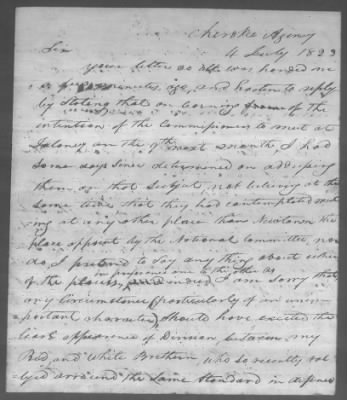 Cherokee Agency
4 July 1823
Sir
Your letter as was handed me
a few minutes ago, and hasten to reply
by stating that on learning from of the
intention of the Commissioners to meet at
on the 9th next month, I had
some days since determined on addressing
them, on that Subject, not believing at the
same time that they had contemplated meet
ing at any other place than Newtown the
place appoint by the National Committee, nor
do I pretend to say any thing about either
of the places, in preference one to the other as I am sorry that
any Circumstance (particularly of an unim-
portant character) should have excited the
least appearance of Division, between my
Red, and White Brethren, who so recently ral
lyed arround the same Standard in defence